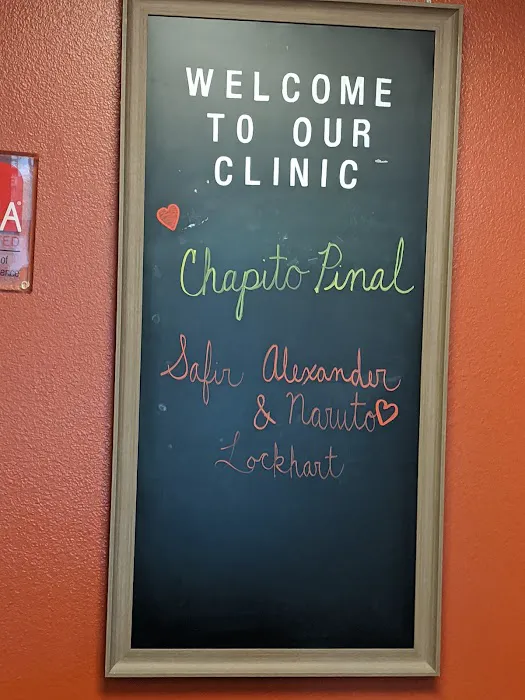 WELCOME
TO OUR
CLINIC
Chapito Pinal
Safir Alexander
& Naruto
Lockhart
A
of